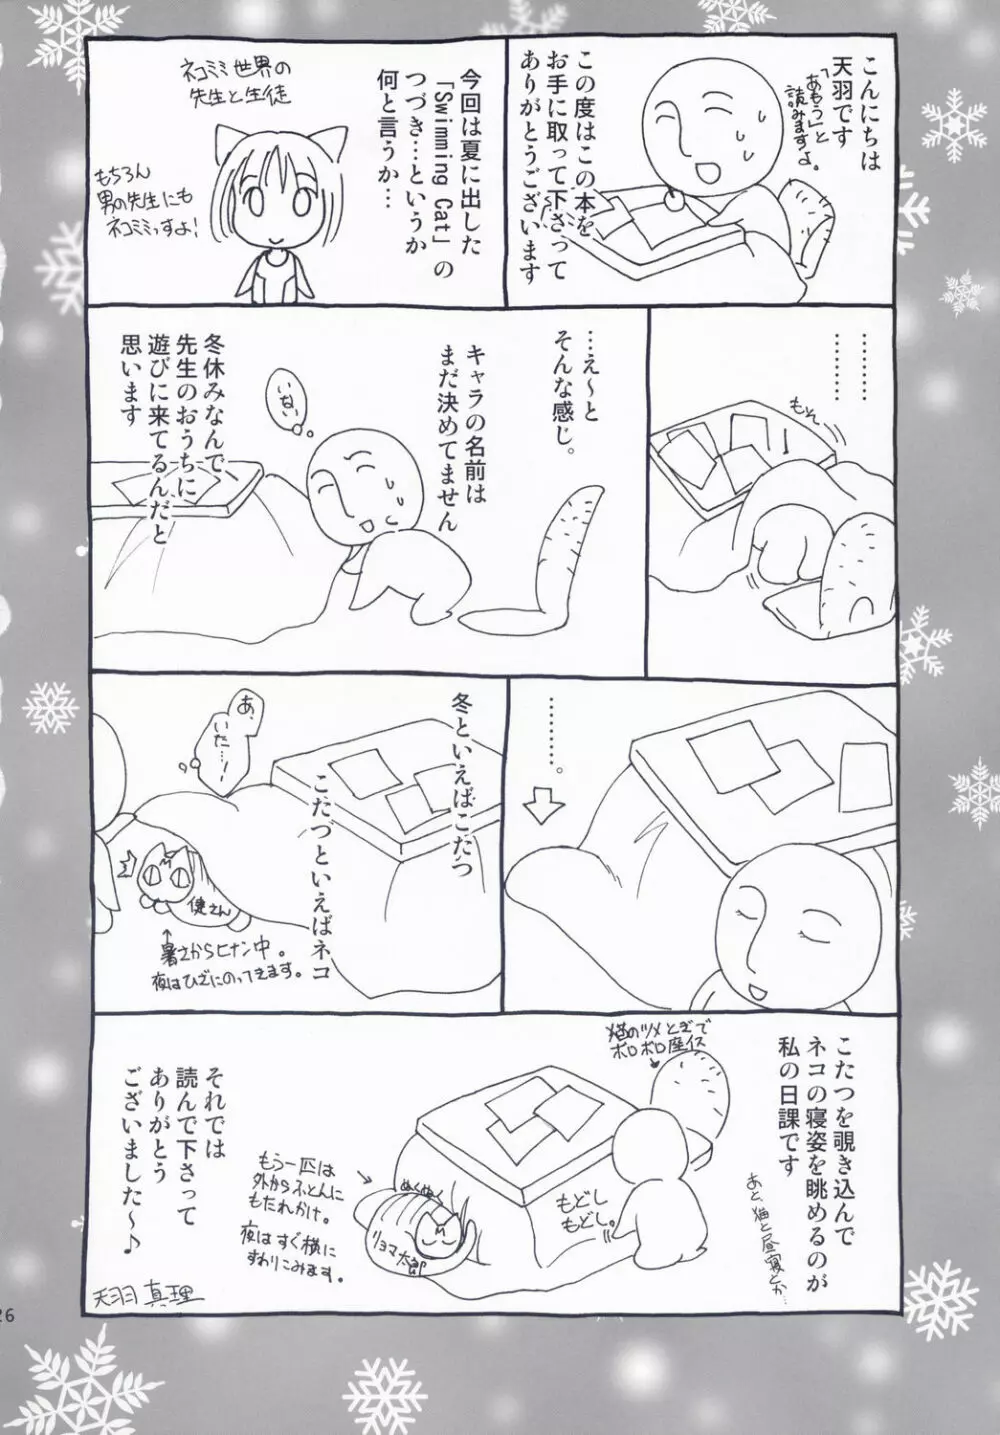 こんにちは
天羽です
「あもう」と
読みますよ。
この度はこの本を
お手に取って下さって
ありがとうございます
今回は夏に出した
「Swimming Cat」の
つづき…というか
何と言うか…
ネコミミ世界の
先生と生徒
もちろん
男の先生にも
ネコミミっすよ!
………
………
もそ
…え〜と
そんな感じ。
キャラの名前は
まだ決めてません
いない
冬休みなんで
先生のおうちに
遊びに来てるんだと
思います
………。
冬といえばこたつ
こたつといえばネコ
あ、
いた…!
健さん
暑さからヒナン中。
夜はひざにのってきます。
こたつを覗き込んで
ネコの寝姿を眺めるのが
私の日課です
あと、猫と昼寝とか…
猫のツメとぎで
ボロボロ座イス
もどし
もどし。
ぬくぬく
リョマ太郎
もう一匹は
外からふとんに
もたれかけ。
夜はすぐ横に
すわりこみます。
それでは
読んで下さって
ありがとう
ございました〜♪
天羽真理
26